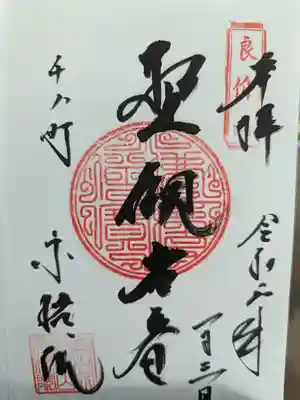 奉拝
良价
令和二年
一月三日
聖観世音
千人町
宗格院